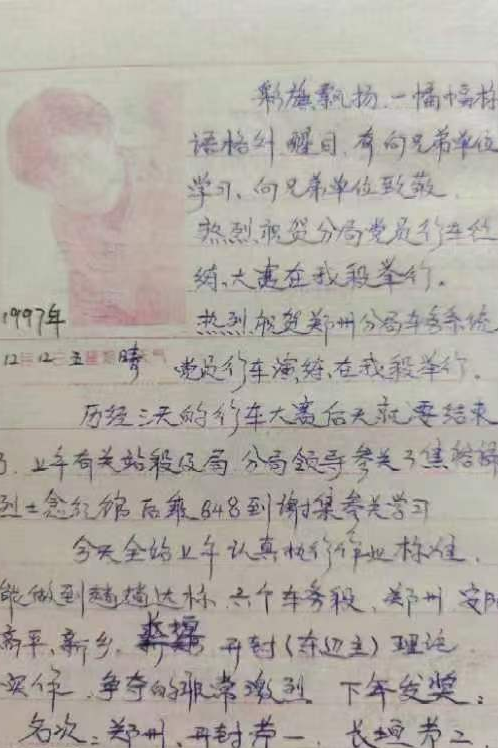 彩旗飘扬.一幅幅标
语格外醒目.有向兄弟单位
学习、向兄弟单位致敬.
热烈祝贺分局党员行车演
练、大赛在我段举行.
1997年
热烈祝贺郑州分局车务系统
12 12 五 晴
党员行车演练、在我段举行.
历经三天的行车大赛后天就要结束
了.上午有关站段及局 分局领导参关了焦裕禄
烈士念纪馆 后乘648到谢集参关学习
今天全的上午认真执行作业标准.
能做到趟趟达标.六个车务段.郑州 安阳
新乡. 长垣 开封(东边主)理论
实作.争夺的非常激烈 下午发奖.
名次:郑州、开封第一. 长垣 第二